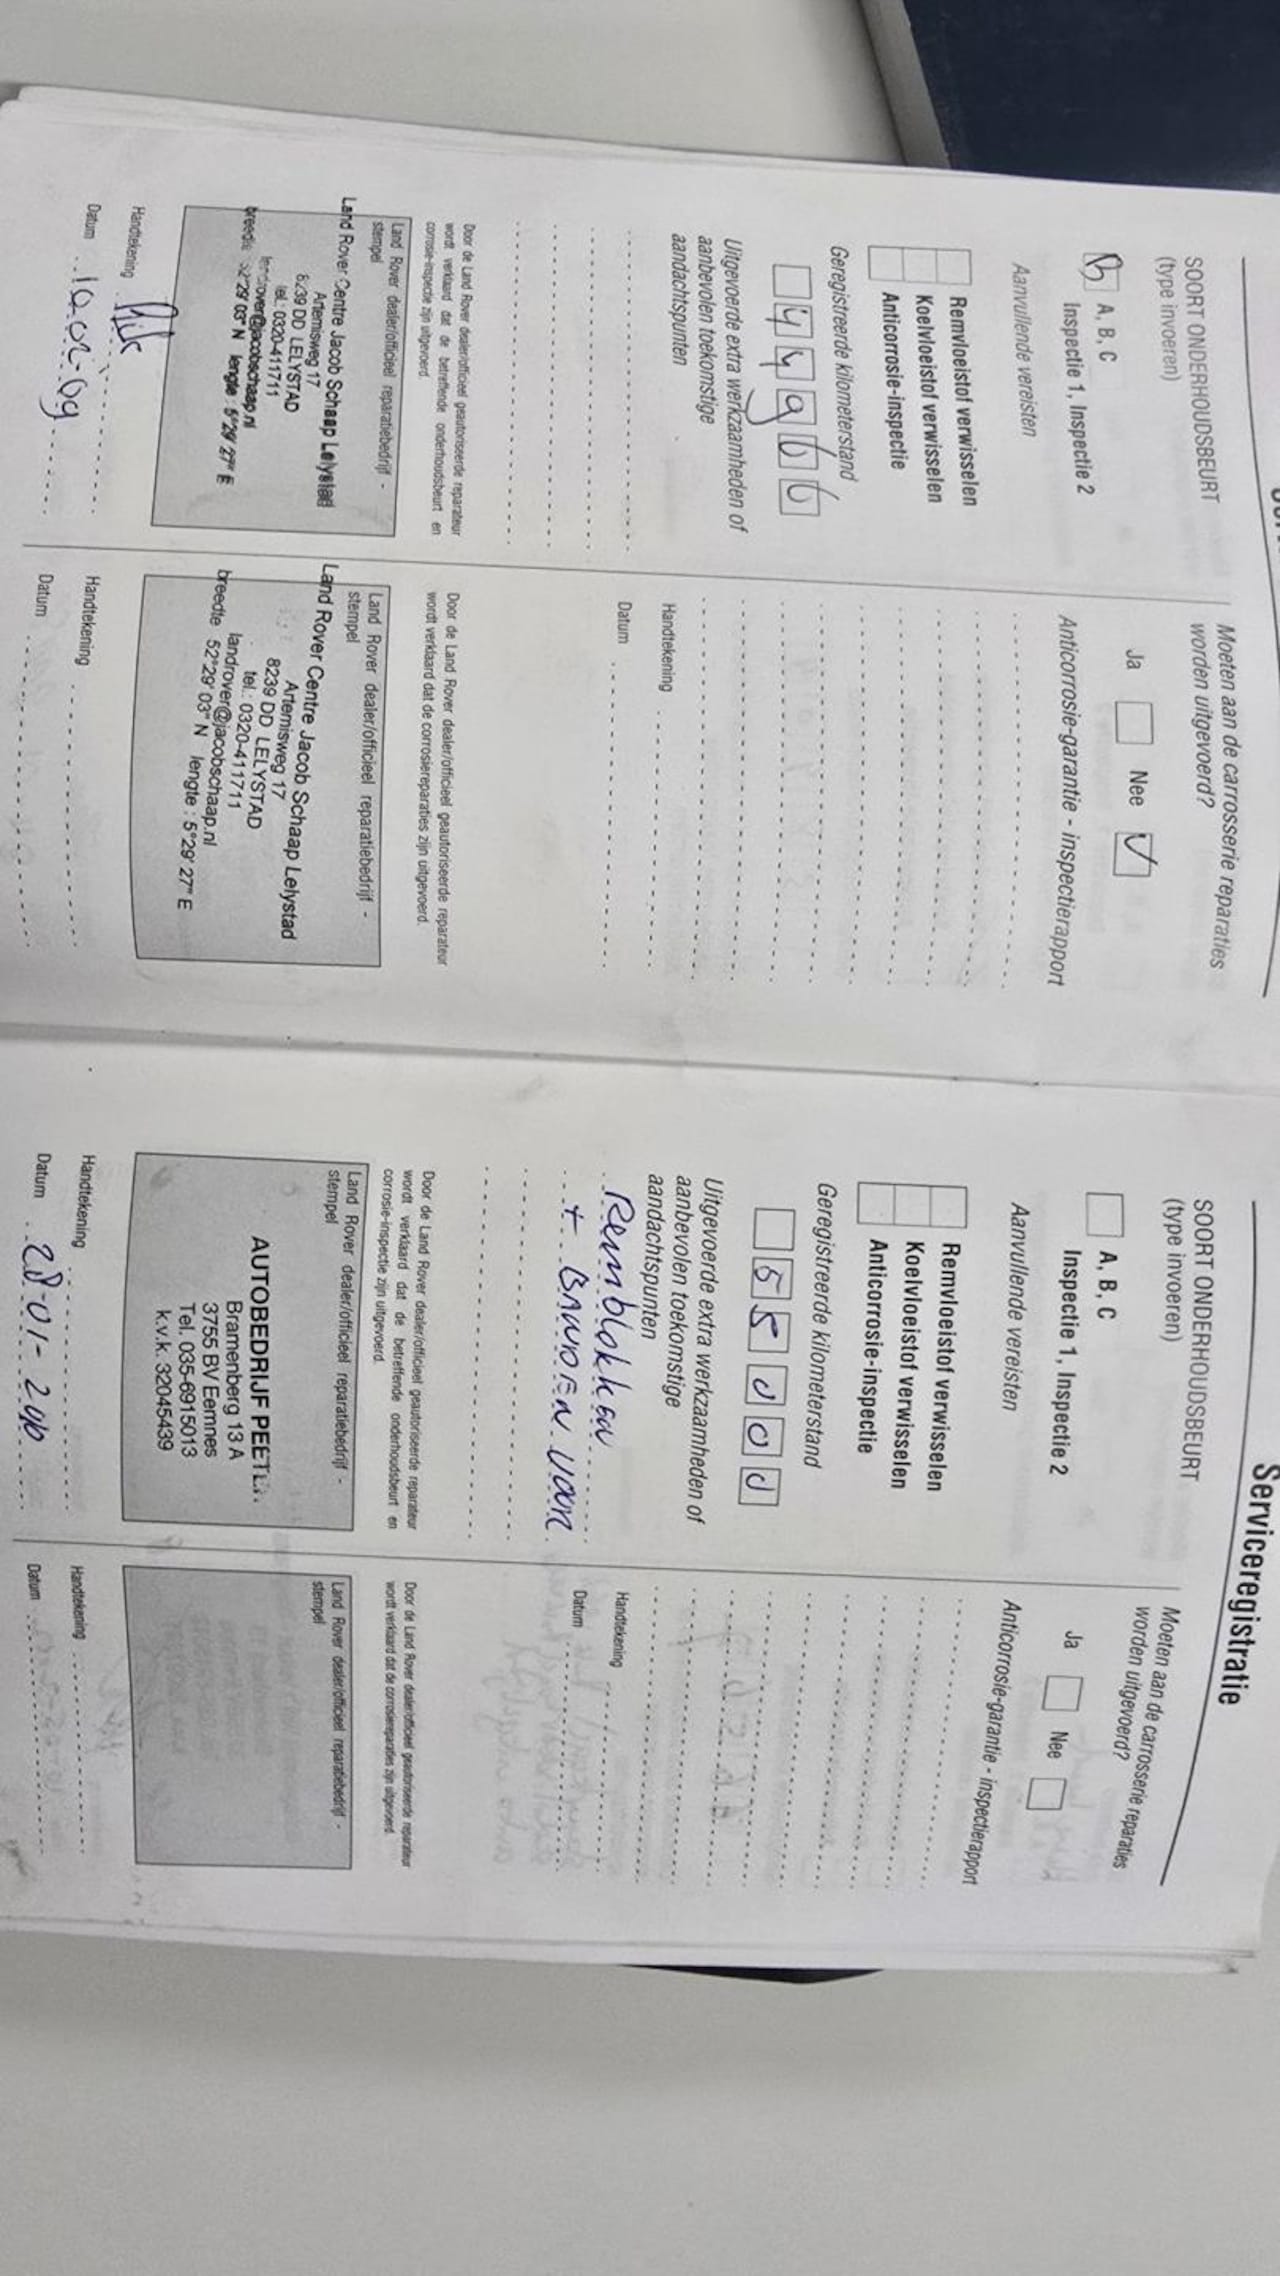 SOORT ONDERHOUDSBEURT
(type invoeren)
B A, B, C
Inspectie 1, Inspectie 2
Aanvullende vereisten
Remvloeistof verwisselen
Koelvloeistof verwisselen
Anticorrosie-inspectie
Geregistreerde kilometerstand
44966
Uitgevoerde extra werkzaamheden of
aanbevolen toekomstige
aandachtspunten
Door de Land Rover dealer/officieel geautoriseerde reparateur
wordt verklaard dat de betreffende onderhoudsbeurt en
corrosie-inspectie zijn uitgevoerd.
Land Rover dealer/officieel reparatiebedrijf -
stempel
Land Rover Centre Jacob Schaap Lelystad
Artemisweg 17
8239 DD LELYSTAD
tel.: 0320-411711
landrover@jacobschaap.nl
breedte 52°29' 03" N lengte : 5°29' 27" E
Handtekening
Datum
Moeten aan de carrosserie reparaties
worden uitgevoerd?
Ja Nee ✓
Anticorrosie-garantie - inspectierapport
Handtekening
Datum
Door de Land Rover dealer/officieel geautoriseerde reparateur
wordt verklaard dat de corrosiereparaties zijn uitgevoerd.
Land Rover dealer/officieel reparatiebedrijf -
stempel
Land Rover Centre Jacob Schaap Lelystad
Artemisweg 17
8239 DD LELYSTAD
tel.: 0320-411711
landrover@jacobschaap.nl
breedte 52°29' 03" N lengte : 5°29' 27" E
Handtekening
Datum
Serviceregistratie
SOORT ONDERHOUDSBEURT
(type invoeren)
A, B, C
Inspectie 1, Inspectie 2
Aanvullende vereisten
Remvloeistof verwisselen
Koelvloeistof verwisselen
Anticorrosie-inspectie
Geregistreerde kilometerstand
55000
Uitgevoerde extra werkzaamheden of
aanbevolen toekomstige
aandachtspunten
Remblokken
+ Banden voor
Door de Land Rover dealer/officieel geautoriseerde reparateur
wordt verklaard dat de betreffende onderhoudsbeurt en
corrosie-inspectie zijn uitgevoerd.
Land Rover dealer/officieel reparatiebedrijf -
stempel
AUTOBEDRIJF
Bramenberg 13 A
3755 BV Eemnes
Tel. 035-6915013
k.v.k. 32045439
Handtekening
Datum 28-01-
Moeten aan de carrosserie reparaties
worden uitgevoerd?
Ja Nee
Anticorrosie-garantie - inspectierapport
Handtekening
Datum
Door de Land Rover dealer/officieel geautoriseerde reparateur
wordt verklaard dat de corrosiereparaties zijn uitgevoerd.
Land Rover dealer/officieel reparatiebedrijf -
stempel
Handtekening
Datum